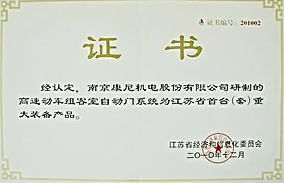 证书编号：201002
证 书
经认定，南京康尼机电股份有限公司研制的
高速动车组客室自动门系统为江苏省首台（套）重
大装备产品。
江苏省经济和信息化委员会
二〇一〇年十二月